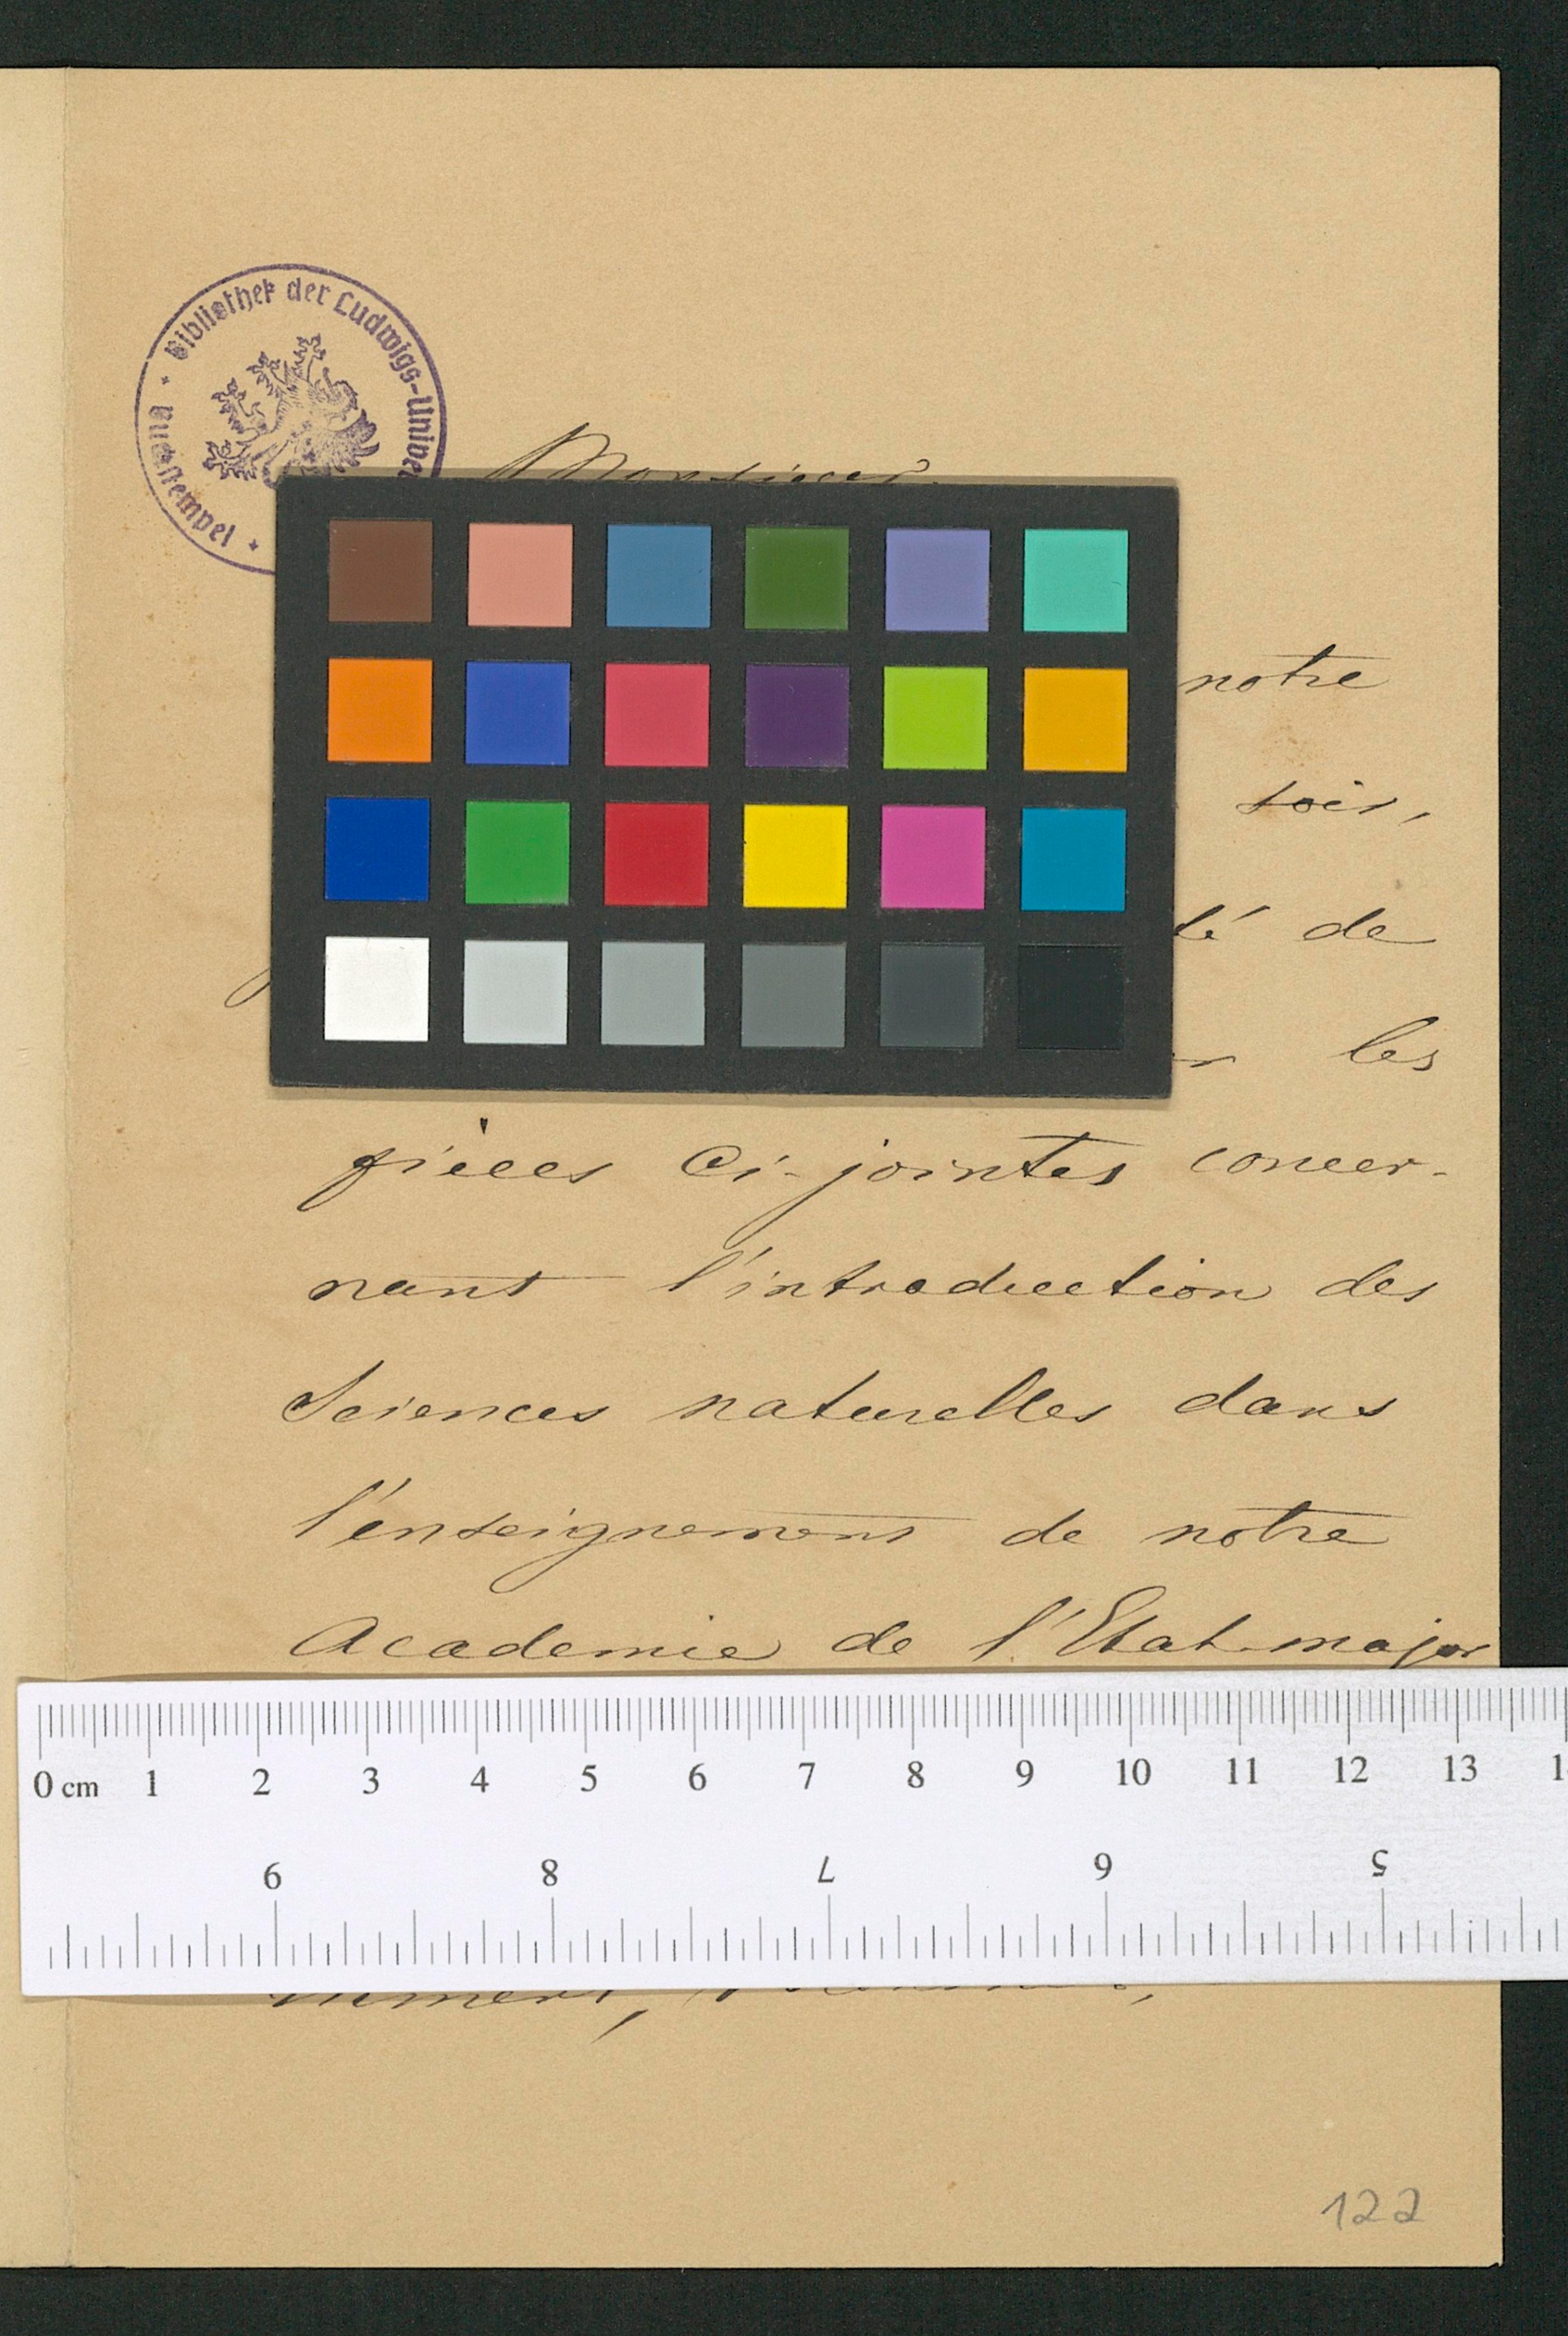 Bibliothek der Ludwigs-Univer
Buchstempel
Monsieur
notre
soir,
té de
les
pièces ci-jointes concer-
nant l'introduction des
Sciences naturelles dans
l'enseignement de notre
Academie de l'Etat-major
0 cm 1 2 3 4 5 6 7 8 9 10 11 12 13 1
9 8 7 6 5
122